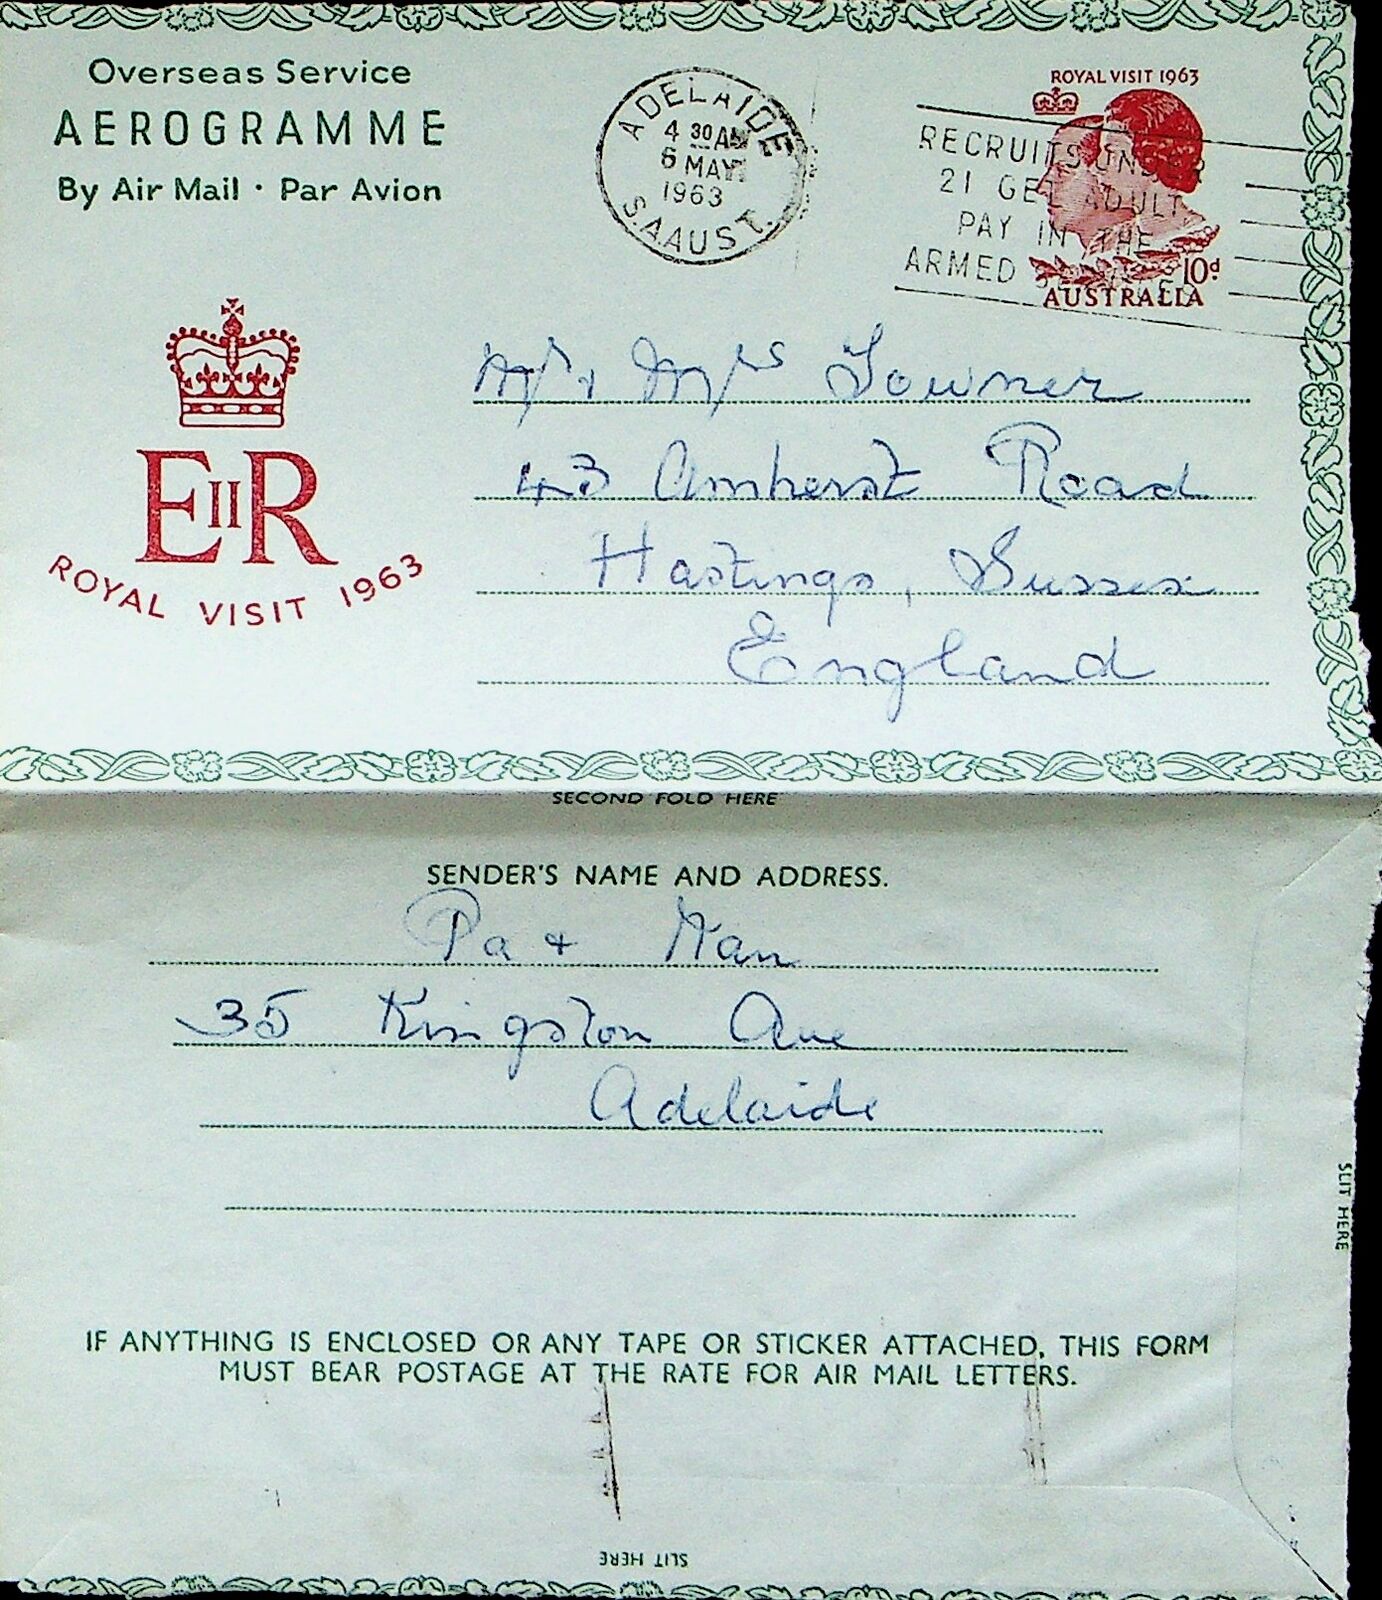 Overseas Service
AEROGRAMME
By Air Mail · Par Avion
ADELAIDE
4 30 AM
6 MAY
1963
S.A AUST.
ROYAL VISIT 1963
RECRUITS UNDER
21 GET ADULT
PAY IN THE
ARMED SERVICES
10d
AUSTRALIA
EIIR
ROYAL VISIT 1963
Mr & Mrs Towner
43 Amherst Road
Hastings, Sussex
England
SECOND FOLD HERE
SENDER'S NAME AND ADDRESS.
Pa + Nan
35 Kingston Ave
Adelaide
SLIT HERE
IF ANYTHING IS ENCLOSED OR ANY TAPE OR STICKER ATTACHED, THIS FORM
MUST BEAR POSTAGE AT THE RATE FOR AIR MAIL LETTERS.
SLIT HERE